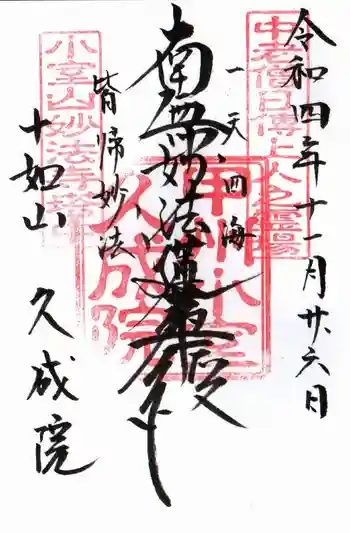 令和四年十一月廿六日
中老僧日傳上人之霊場
一天四海
南無妙法蓮華経
皆帰妙法
甲州小室
久成院
小室山妙法寺
十如山
久成院